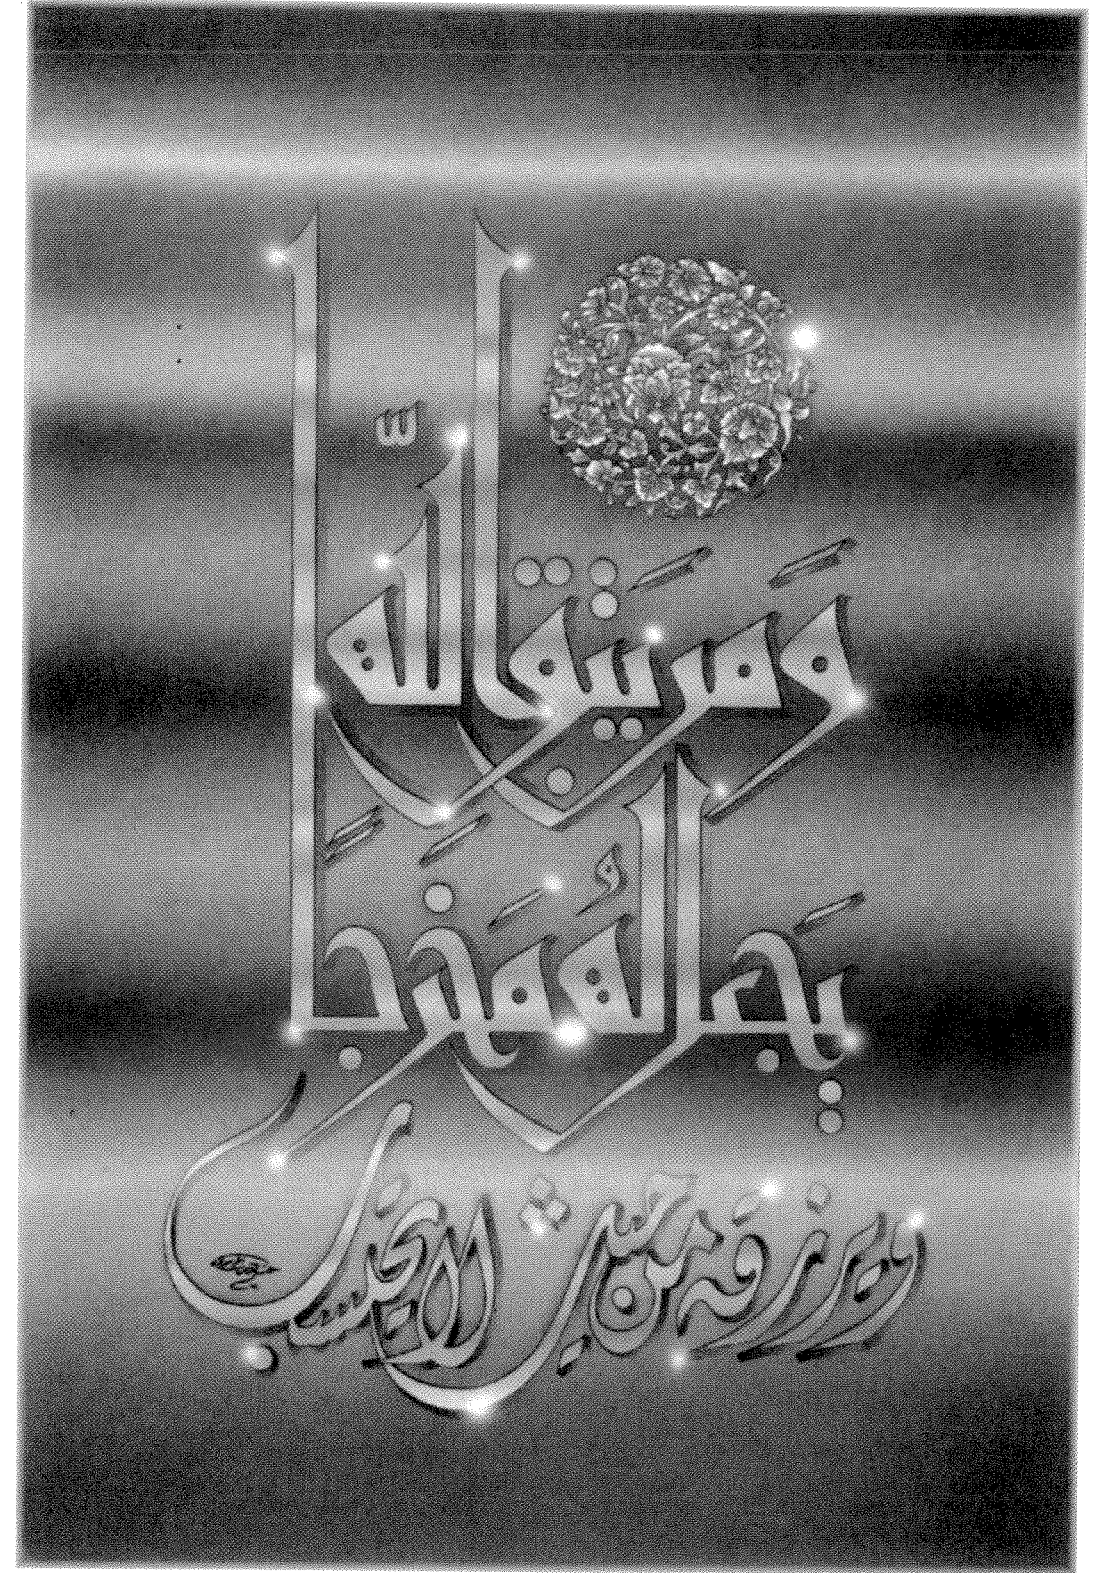 وَمَن يَتَّقِ اللّه
يَجعَل لَهُ مَخرَجاً
ويرزقه من حيث لا يحتسب